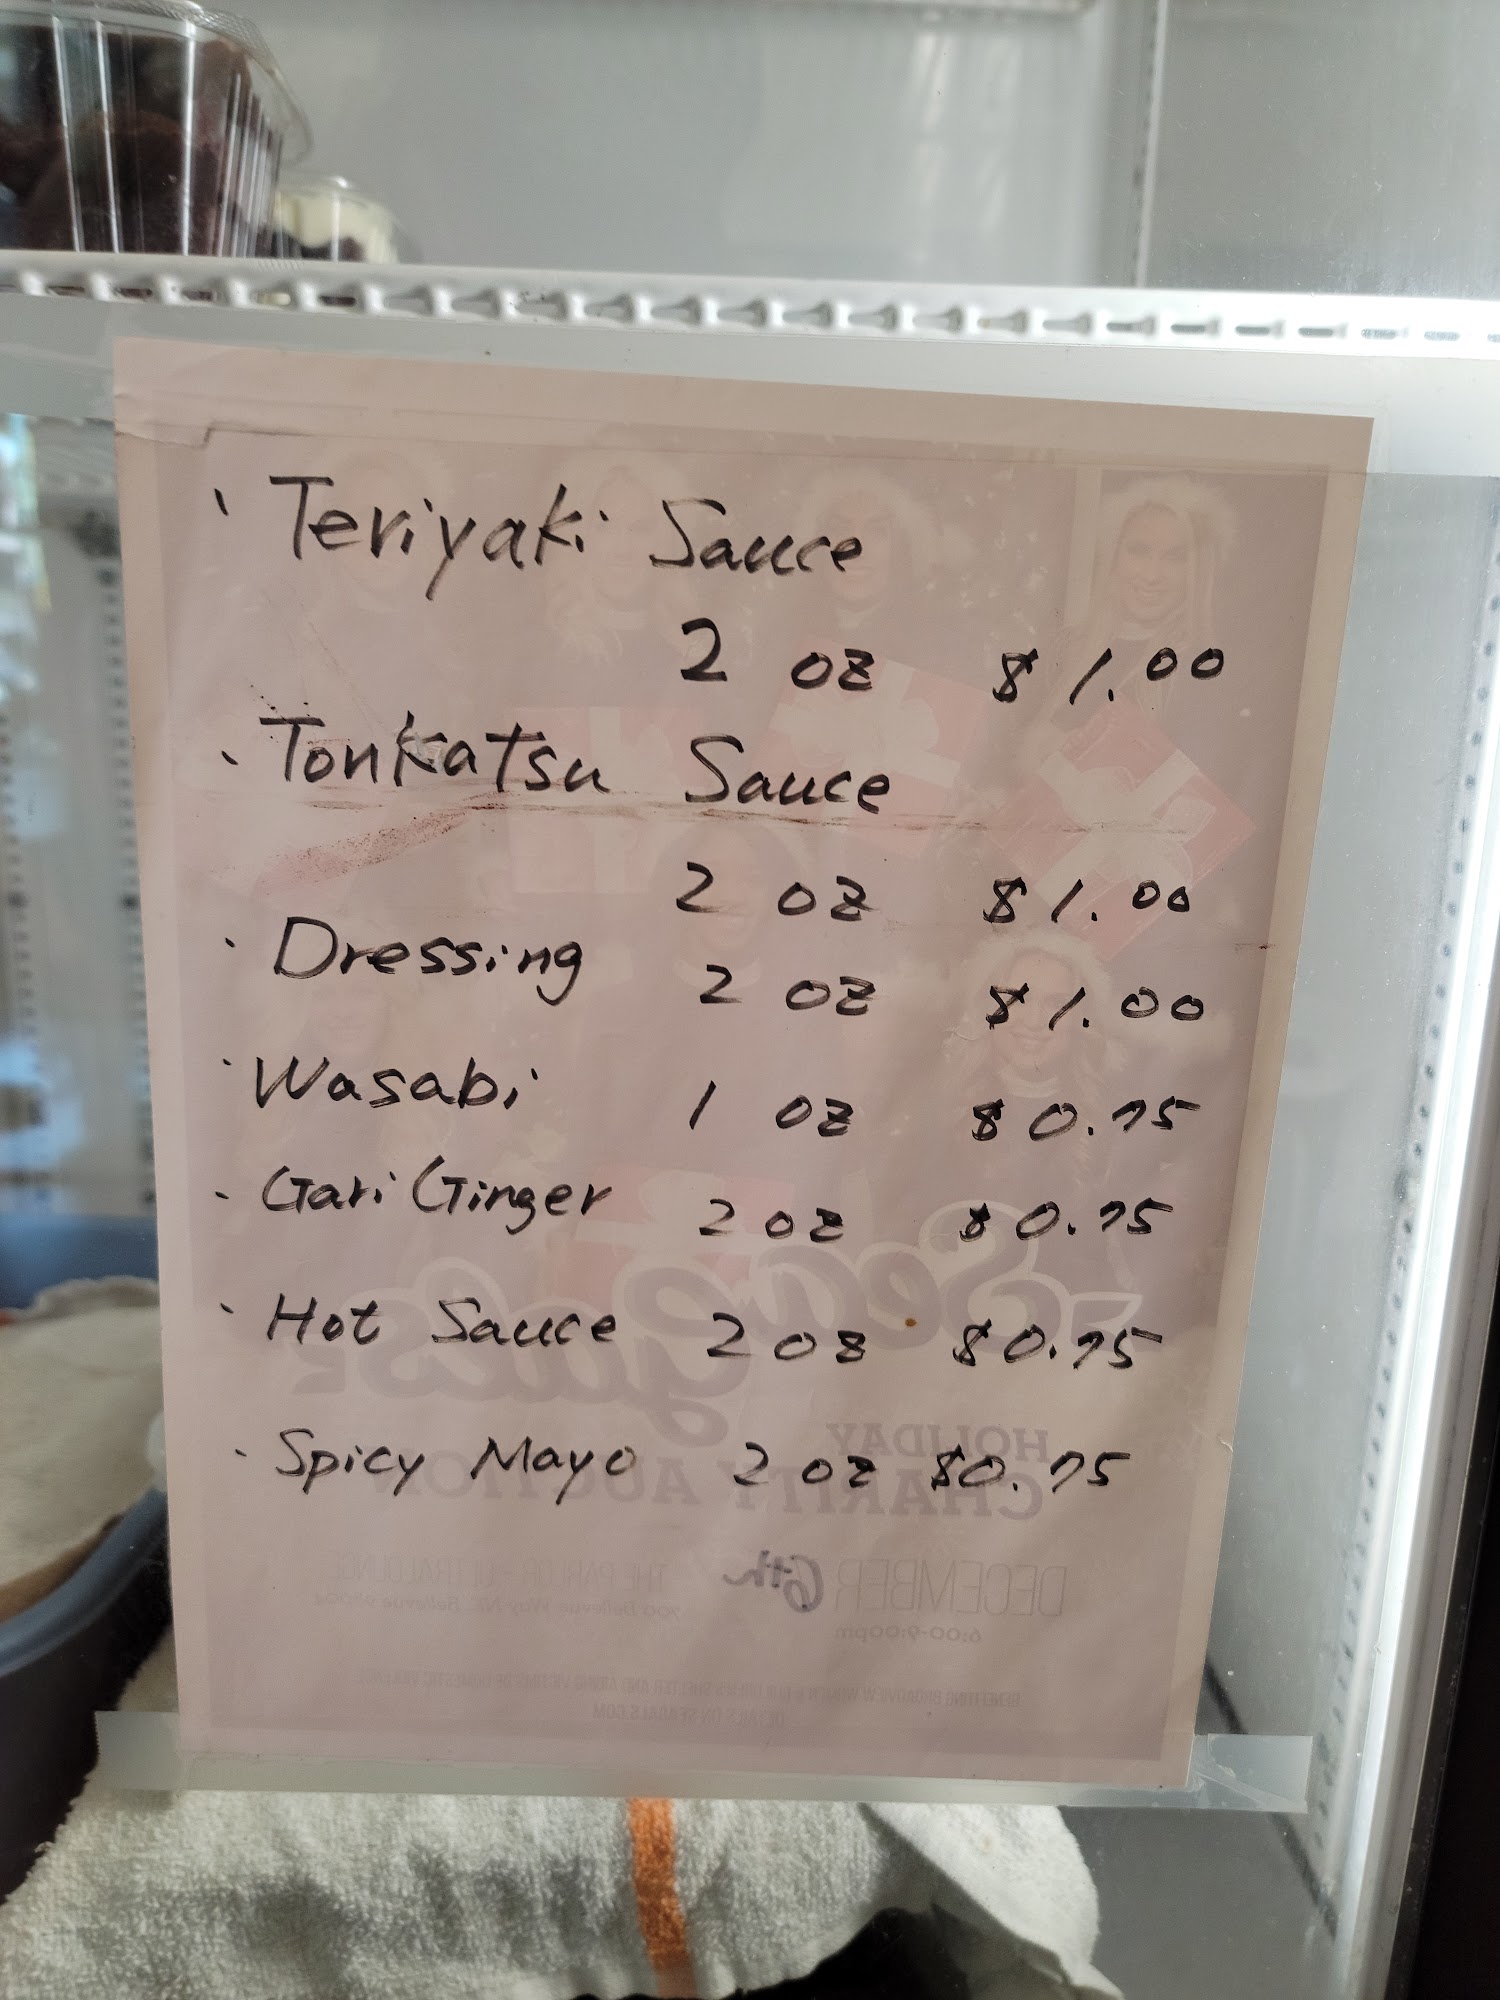 · Teriyaki Sauce
2 oz $1.00
· Tonkatsu Sauce
2 oz $1.00
· Dressing 2 oz $1.00
· Wasabi 1 oz $0.75
· Gari Ginger 2 oz $0.75
· Hot Sauce 2 oz $0.75
· Spicy Mayo 2 oz $0.75
Sea
gals
HOLIDAY
CHARITY AUCTION
DECEMBER 6th
6:00-9:00pm
THE PARLOR ULTRALOUNGE
700 Bellevue Way NE, Bellevue 98004
DETAILS ON SEAGALS.COM